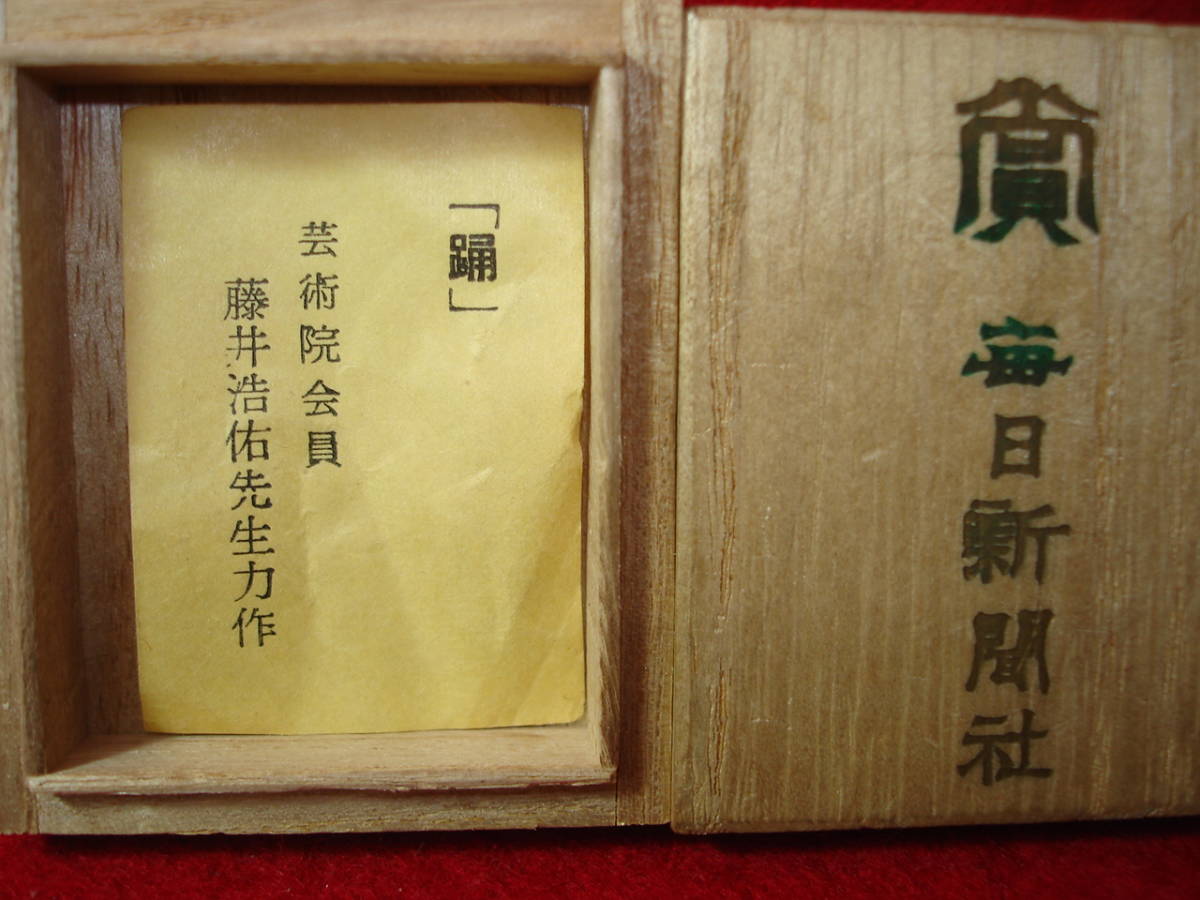 賞
毎日新聞社
「踊」
芸術院会員
藤井浩佑先生力作